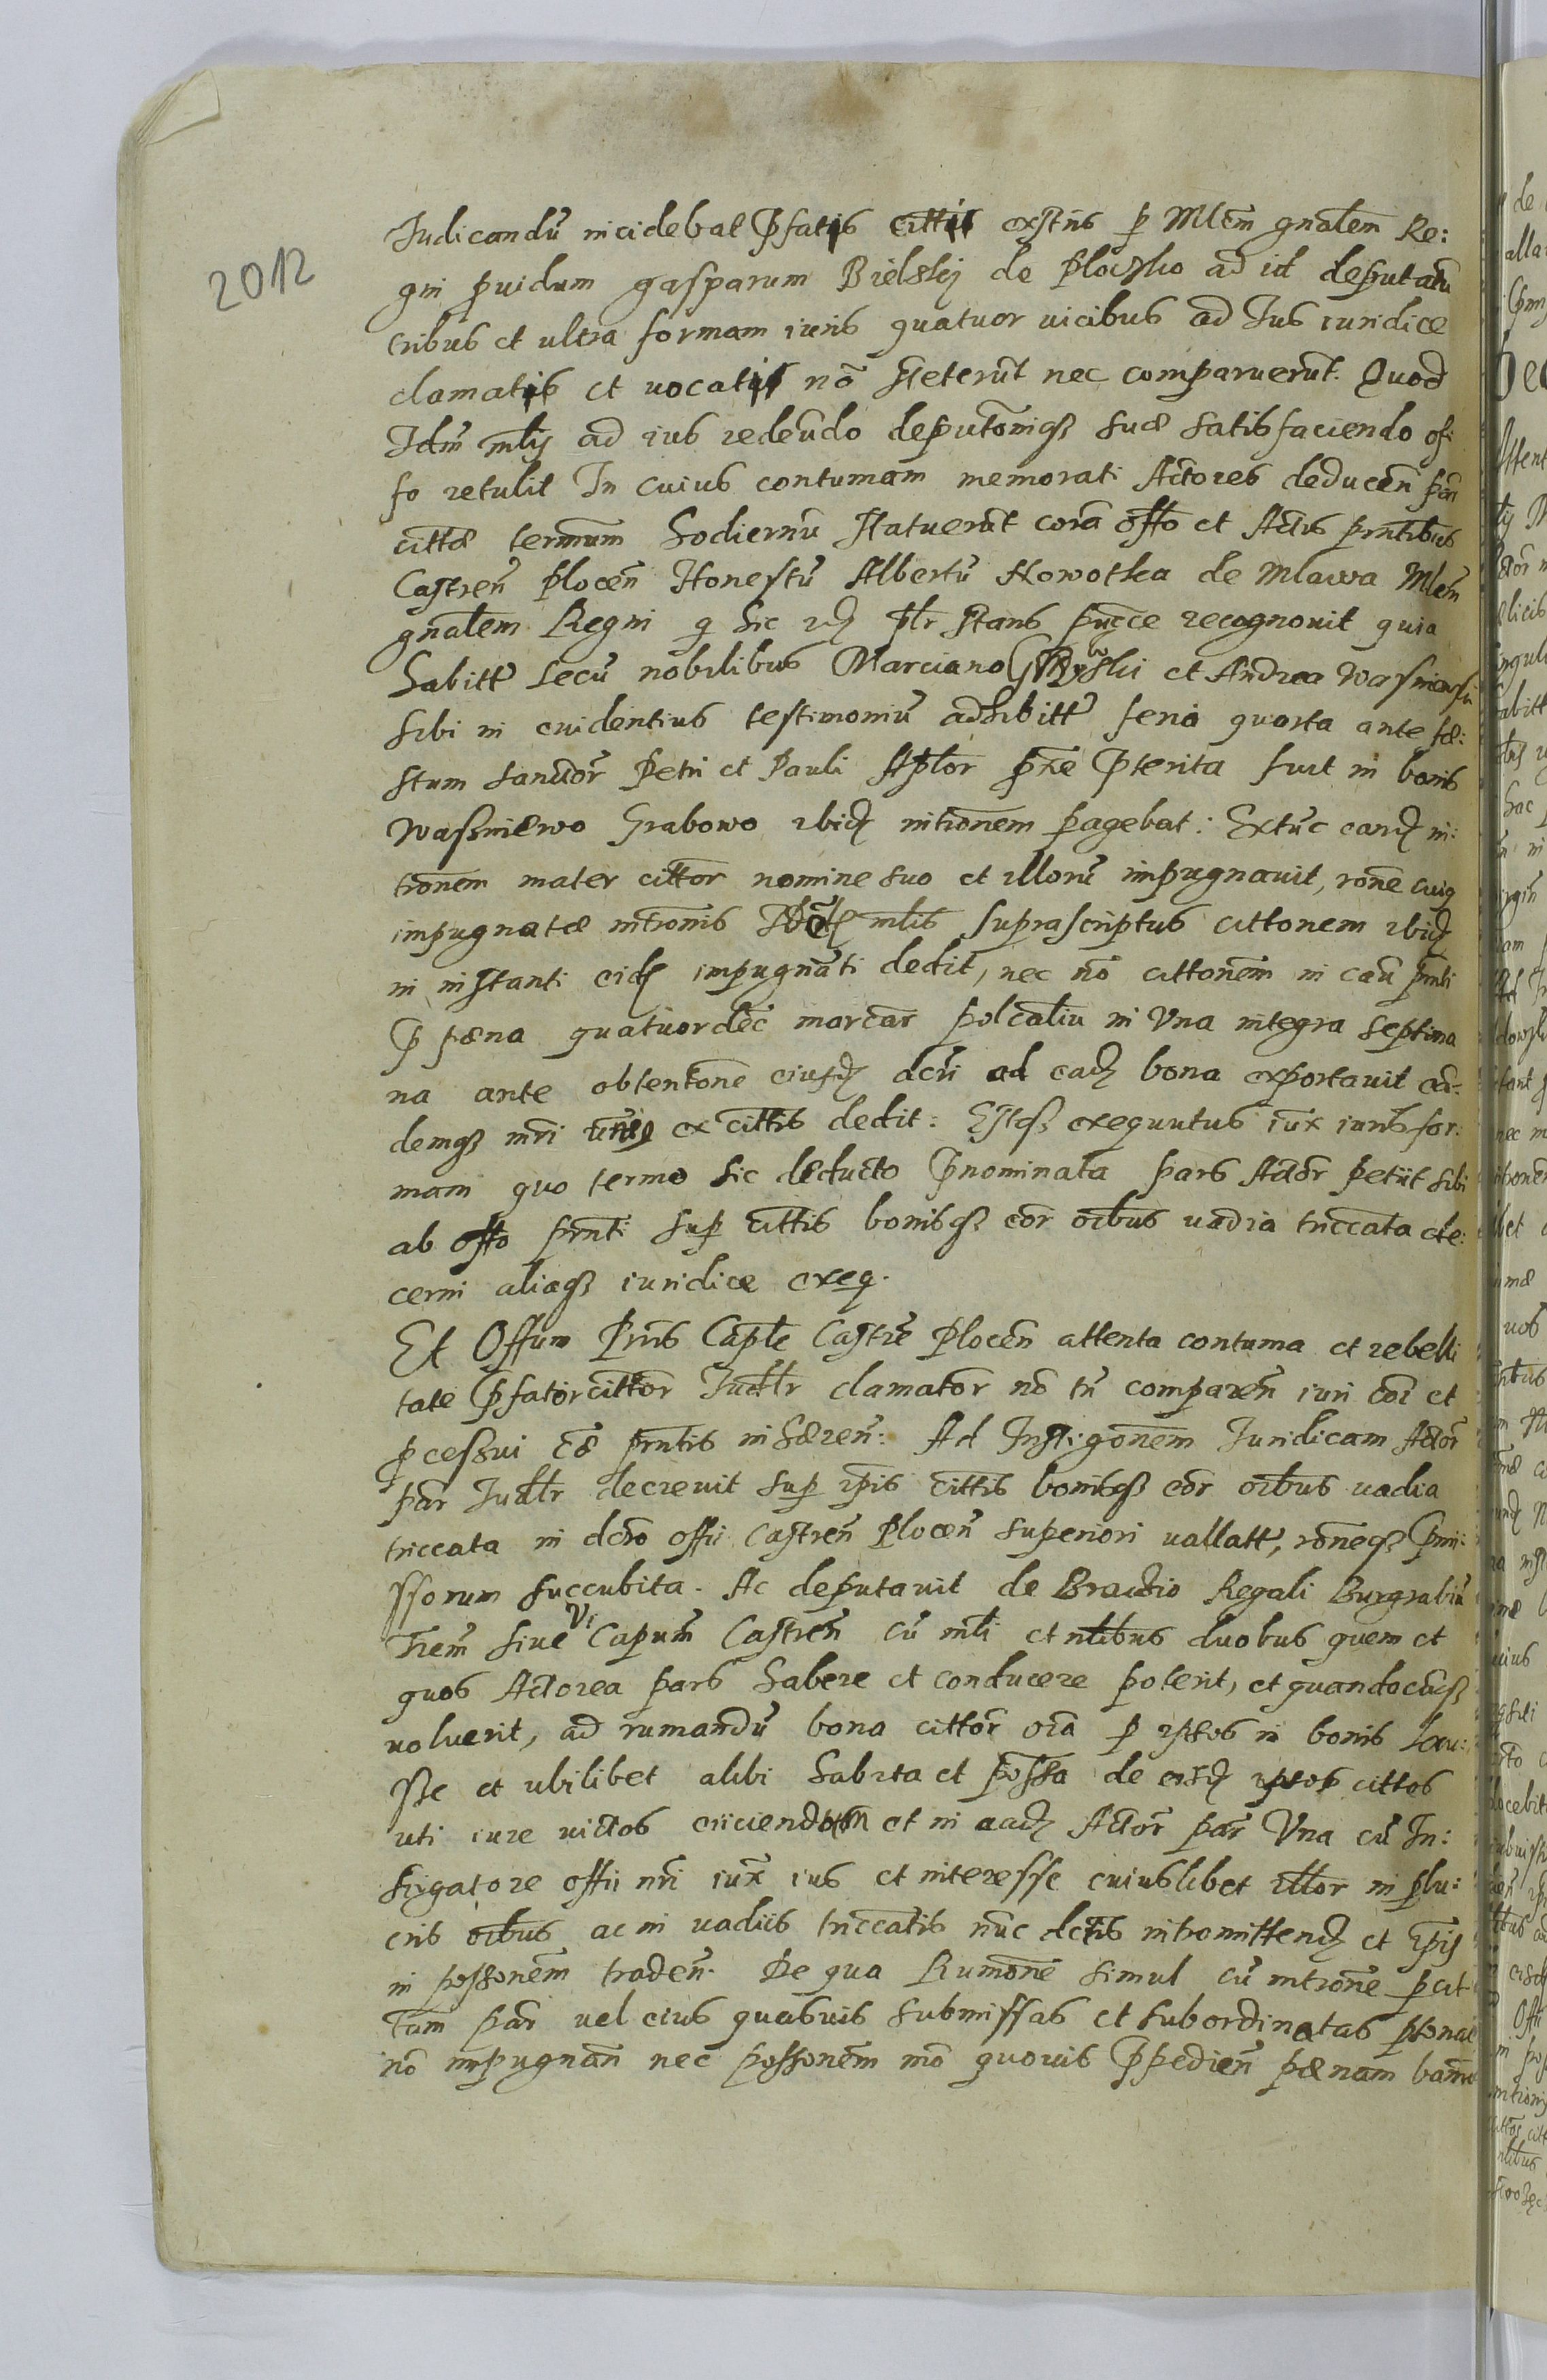 2012
Iudicandũ incidebat Pfatis cittis exñtis p Mlem gnalem Re:
gni puidum gasparum Bielskj de Ploczko ad id deputatũ
tribus et ultra formam iuris quatuor uicibus ad Ius iuridice
clamatis et uocatis nõ steterũt nec comparuerũt. Quod
Idm mlis ad ius redeundo deputõniqз suæ satisfaciendo off
fo retulit In cuius contumam memorati Actores deducen par
cittæ termum hodiernũ statuerũt corã offo et Actis pntibus
Castren̄ Plocen̄ Honestũ Albertũ Nowotka de Mlawa Mlem
gnalem Regni q hic plr stans recognouit quia
habitt secũ nobilibus Marciano et Andrea
sibi in euidentius testimoniũ adhibitt feria quarta ante fe:
stum sanctor Petri et Pauli Aplor pterita fuit in bonis
Wassniewo Grabowo ibidз intronem pagebat: Extũc eandз in:
tronem mater cittor nomine suo et illorũ impugnauit, rone cuiq
impugnatæ intronis mlis suprascriptus cittonem ibidз
in instanti eidз impugnãti dedit, nec nõ cittonem in cau pnti
P pæna quatuordec marcar polcaliu in Una integra septima
na ante obtentone eiusdз dcri ad eadз bona exportauit ea:
demqз mri ex cittis dedit: Estqз exequutus iux iuris for:
mam quo termo sic deducto Pnominata pars Actor petiit sibi
ab offo pnti sup cittis bonisqз eor oibus uadia triccata de:
cerni aliaqз iuridice exeq.
Et Offum Pnis Caple Castre Plocen attenta contuma et rebelli
tate Pfator cittor Iudlr clamator nõ tñ comparen iuri coi et
pcessui cæ pntis inhæren: Ad Instigonem Iuridicam Actor
par Iudlr decreuit sup ipis cittis bonisqз eor oibus uadia
triccata in dcro offii Castren Plocen superiori uallatt, roneqз Pmi:
ssorum succubita. Ac deputauit de Brachio Regali Burgrabiũ
siue Vi Capum Castren cũ mli et nlibus duobus quem et
quos Actorea pars habere et conducere poterit, et quandocũqз
uoluerit, ad rumandũ bona cittor oia p ipsos in bonis
sse et ubilibet alibi habita et possa de eisdз ipsos cittos
uti iure uictos eiiciendum et in eadз Actor par Una cũ In:
stigatore offii nri iux ius et interesse cuiuslibet illor in plu:
ribs oibus ac in uadiis triccatis nũc dctis intromittendз et ipis
in possonem traden. De qua Rumone simul cũ introne p cit
tam par uel eius quasuis submissas et subordinatas psonas
nõ impugnan nec possonem mõ quouis Ppedien pænam